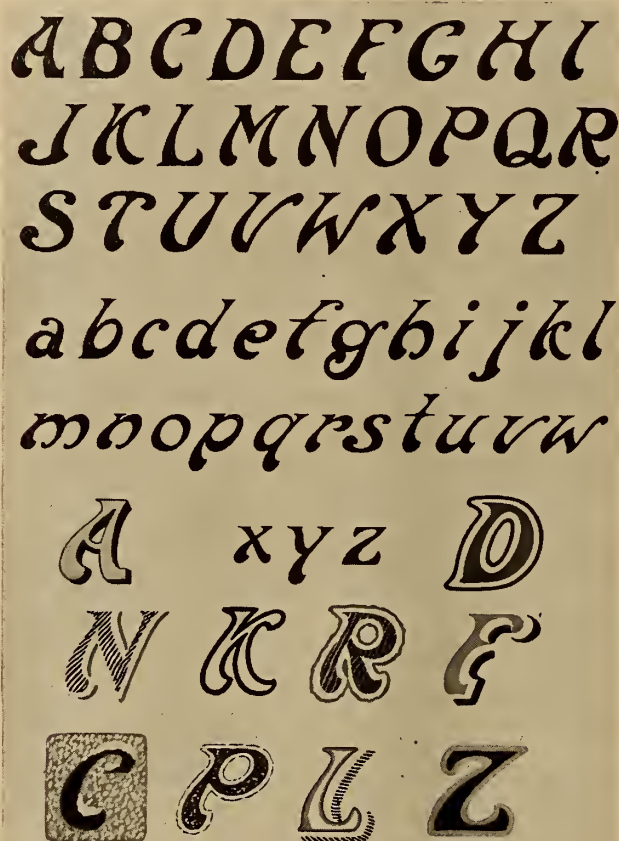 A B C D E F G H I
J K L M N O P Q R
S T U V W X Y Z
a b c d e f g h i j k l
m n o p q r s t u v w
A x y z D
N K R F
C P L Z